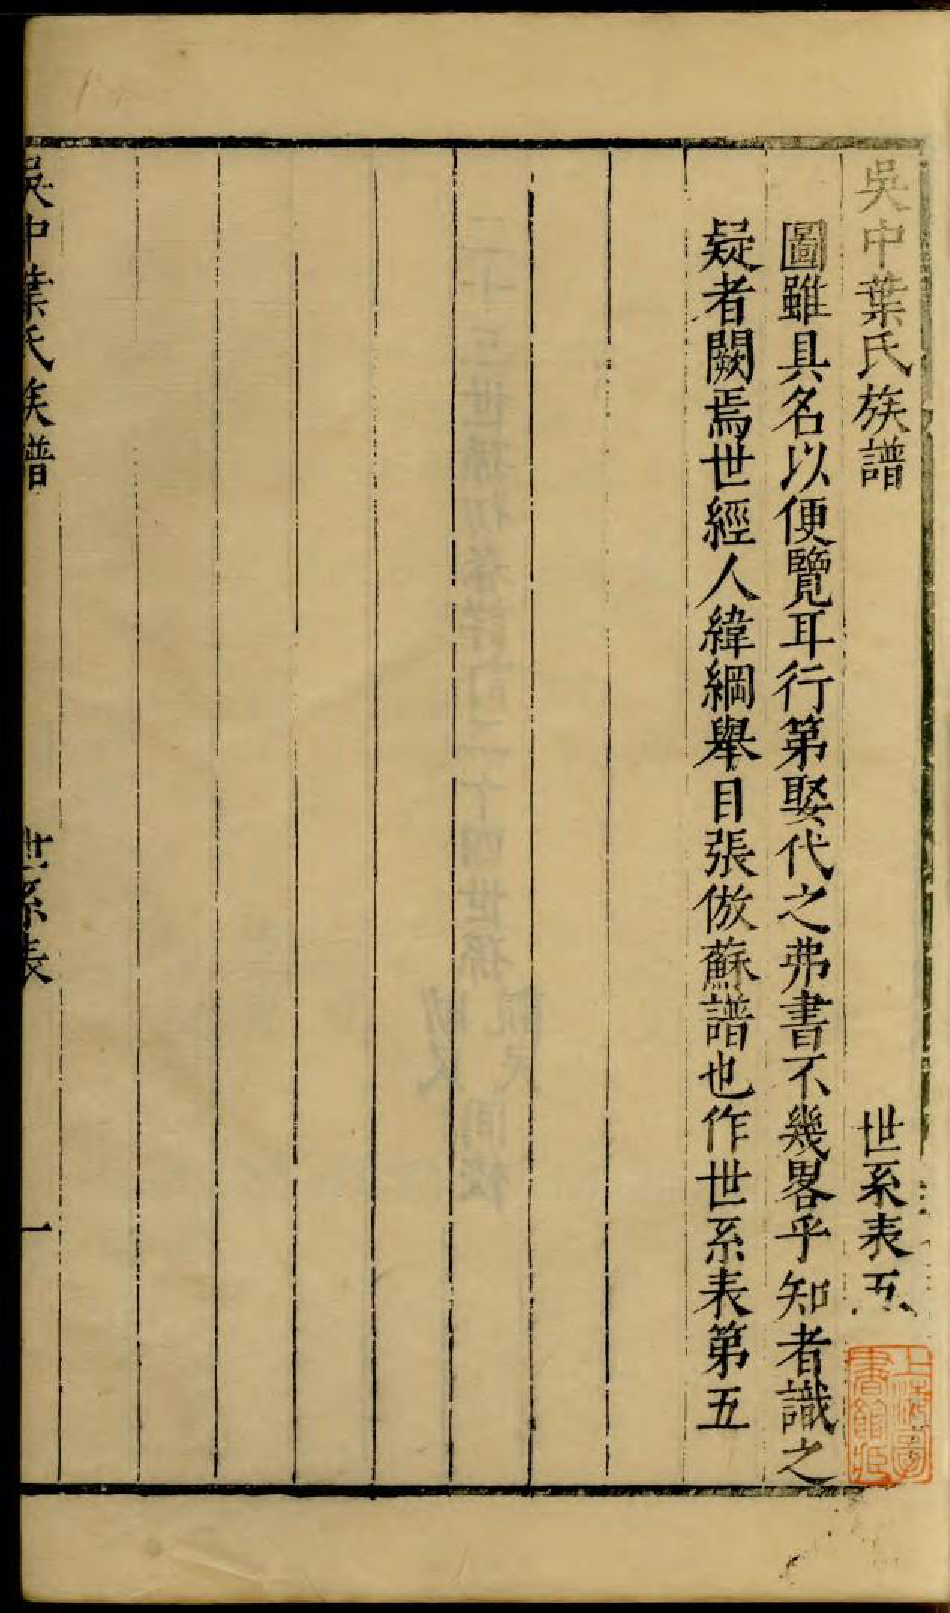 吳中葉氏族譜 世系表五
圖雖具名以便覽耳行第娶代之弗書不幾畧乎知者識之
疑者闕焉世經人緯綱舉目張倣蘇譜也作世系表第五
吳中葉氏族譜 世系表 一
上海圖書館藏